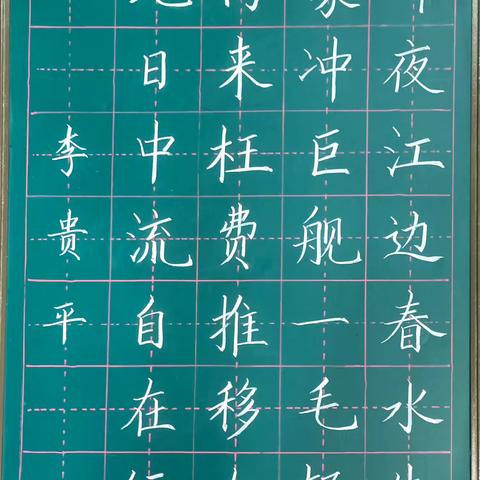 夜江边春水
冲巨舰一毛
来枉费推移
日中流自在
李贵平